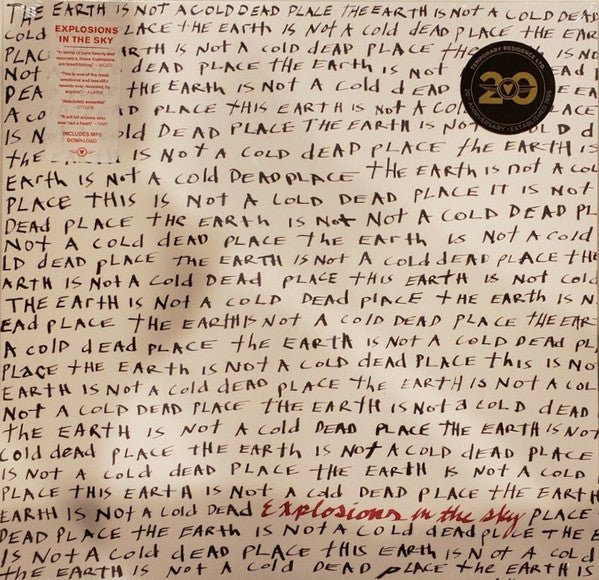 THE EARTH IS NOT A COLD DEAD PLACE THE EARTH IS NOT A COLD DEAD
COLD LACE tHE EARth IS NOT A COLD dEAD PLACE THE EAR
EXPLOSIONS
IN THE SKY
"In terms of pure beauty and
resonation, Texas' Explosions
are breathtaking" – MOJO
"This is one of the most
emotional and beautiful
records ever recorded, by
anyone"
"Absolutely essential"
"It will kill anyone who
ever had a heart"
INCLUDES MP3
DOWNLOAD!
TEMPORARY RESIDENCE LTD.
20
20TH ANNIVERSARY • ESTABLISHED 1996
PLAC RTH IS NOT A COLD dEAD PLACE tHE
NOT dEAD PLACE THE EARTH IS NOt EAd
PEA tHE EARTH IS NOt A COLd dEAD
A CO PLACE tHIS EARTH IS NOt A COL
IS N OLD DEAD PLACE THE EARTH IS NOT LD d
the IS NOT A COLD dEAD PLACE tHE EARTH IS
EARth IS NOt A COLD DEAD PLACE tHE EARTH IS nOt A COL
PLACE THIS IS NOT A COLD DEAD PLACE IT IS NOT
DEAd PLACE tHE EARTH IS NOt NOt A COLD DEAD PL
NOT A COLD dEAD PLACE tHE EARTH IS NOt A COLd
LD dEAD pLACE THE EARTH IS NOt A COLD dEAD PLACE tHE
ARTH IS NOt A COLD DEAD PLACE tHIS EARTH IS NOT COLd
THE EARtH IS NOt A COLD DEAd PLACE tHE EARTH IS N
EAD PLACE THE EARTH IS NOT A COLD DEAD PLACE tHE EAR
A COLD dEAD PLACE tHE EARTH IS NOt A COLD DEAD PL
PLACE tHE EARTH IS NOT A COLD dEAD PLACE tHIS IS NO
EARTH IS NOt A COLD dEAD PLACE tHE EARTH IS NOt A COL
NOt A COLD DEAD PLACE tHE EARTH IS NOt a COLD DEAD
tHE EARTH IS NOT A COLD DEAD PLACE tHE EARTH IS NOT
COLD dEAd PLACE tHE EARTH IS NOT A COLD dEAD PLACE
IS NOT A COLd dEAD PLACE tHE EARTH IS NOT A COLD
PLACE THIS EARTH IS NOT A COLD DEAD PLACE tHE EARTH
EARtH IS NOt A COLD DEAD Explosions in the sky PLACE
DEAD PLACE tHE EARTH IS NOt A COLD dEAD pLACE THE E
IS NOt A COLd dEAD PLACE tHIS EARTH IS NOt A COLD
IS NOT A COLD DEAD PLACE tHE EARTH IS NOT A COLD DEAD